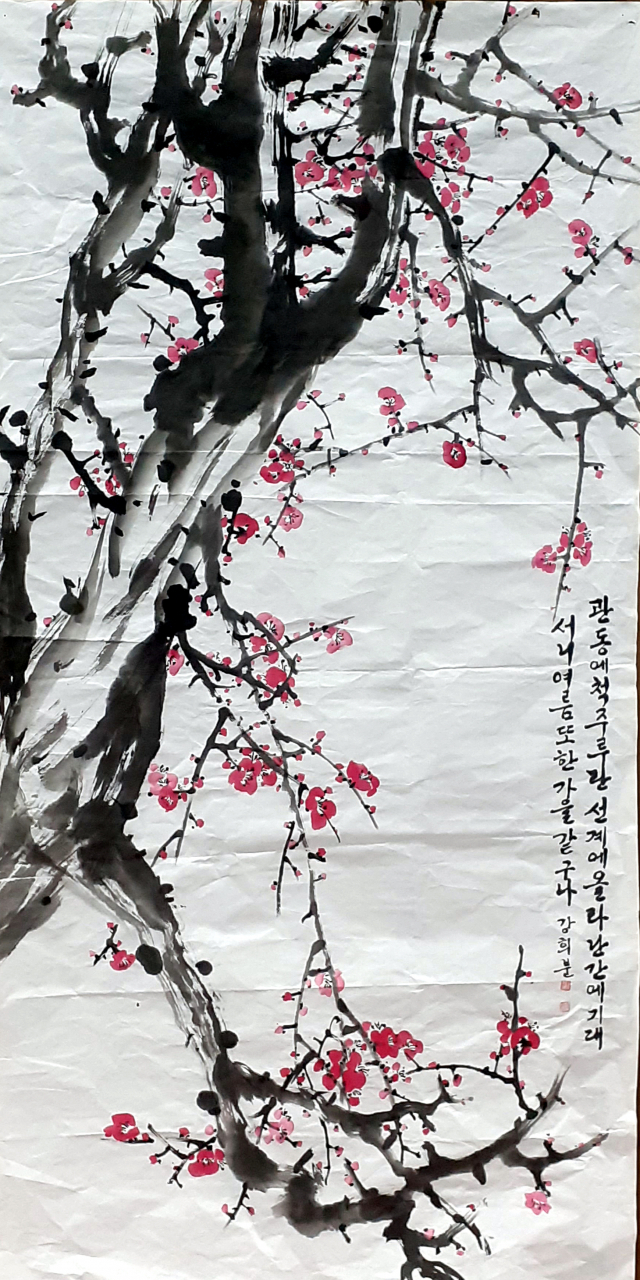 관동에 척주루란 선계에 올라 난간에 기대
서니 여름 또한 가을 같구나 강희분